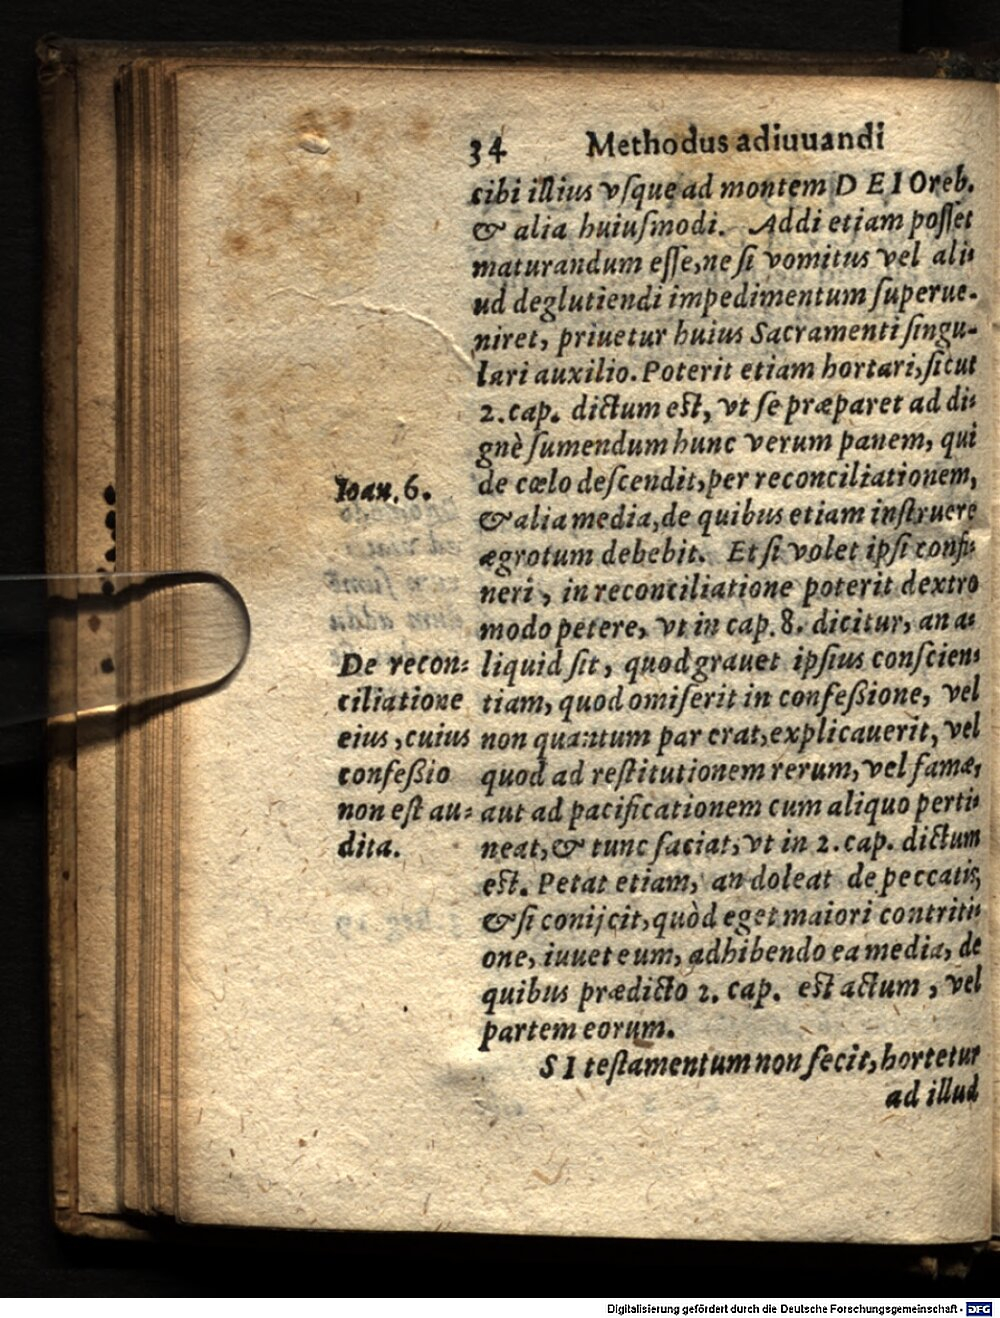 34 Methodus adiuuandi
cibi illius vſque ad montem D E I Oreb.
& alia huiuſmodi. Addi etiam poſſet
maturandum eſſe, ne ſi vomitus vel ali⸗
ud deglutiendi impedimentum ſuperue-
niret, priuetur huius Sacramenti ſingu-
lari auxilio. Poterit etiam hortari, ſicut
2. cap. dictum eſt, vt ſe præparet ad di⸗
gnè ſumendum hunc verum panem, qui
de cœlo deſcendit, per reconciliationem,
& alia media, de quibus etiam inſtruere
ægrotum debebit. Et ſi volet ipſi confi⸗
neri, in reconciliatione poterit dextro
modo petere, vt in cap. 8. dicitur, an a⸗
liquid ſit, quod grauet ipſius conſcien⸗
tiam, quod omiſerit in confeßione, vel
non quantum par erat, explicauerit, vel
quod ad reſtitutionem rerum, vel famæ,
aut ad pacificationem cum aliquo perti⸗
neat, & tunc faciat, vt in 2. cap. dictum
eſt. Petat etiam, an doleat de peccatis,
& ſi conijcit, quòd eget maiori contriti⸗
one, iuuet eum, adhibendo ea media, de
quibus prædicto 2. cap. eſt actum, vel
partem eorum.
S I teſtamentum non fecit, hortetur
ad illud
Ioan. 6.
De recon⸗
ciliatione
eius, cuius
confeßio
non eſt au⸗
dita.
Digitalisierung gefördert durch die Deutsche Forschungsgemeinschaft - DFG